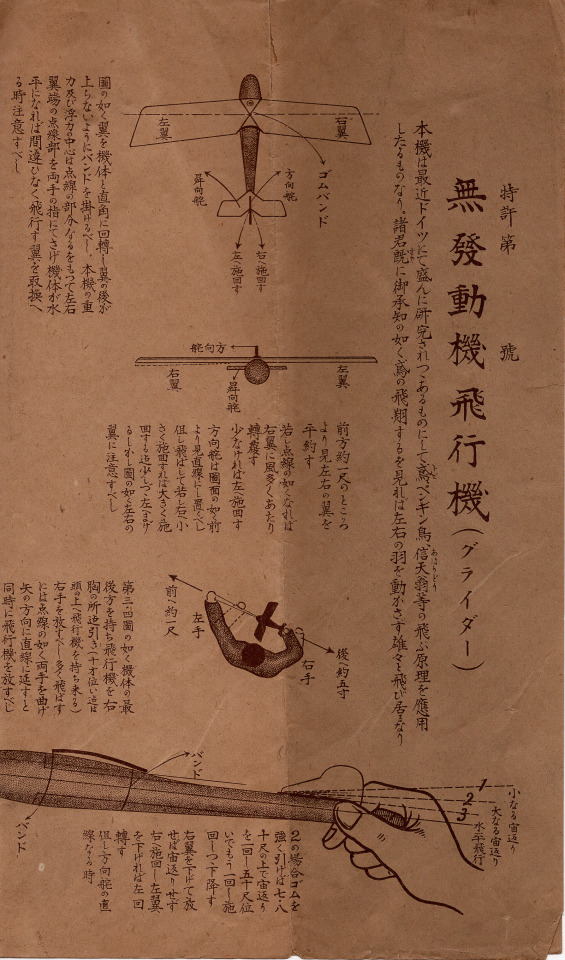 特許第　　號
無發動機飛行機(グライダー)
本機は最近ドイツにて盛んに研究されつゝあるものにして鳶ペンギン鳥、信天翁等の飛ぶ原理を應用
したるものなり。諸君既に御承知の如く鳶の飛翔するを見れば左右の羽を動かさず雄々と飛び居るなり
右翼
左翼
ゴムバンド
方向舵
昇向舵
右へ施回す
左へ施回す
圖の如く翼を機体と直角に回轉し翼の後が
上らないようにバンドを掛けるべし、本機の重
力及び浮力の中心は点線の部分なるをもつて左右
翼端の点線部を両手の指にてさげ機体が水
平になれば間違ひなく飛行す翼を取換へ
る時注意すべし
舵向方
左翼
右翼
昇向舵
前方約一尺のところ
より見左右の翼を
平約す
若し点線の如くなれば
右翼に風多くあたり
轉覆す
少なければ左へ施回す
方向舵は圖面の如く前
より見直線にし置くべし
但し飛ばして若し右へ小
さく施回すれば大きく施
回する迠少しづゝ左へまげ
るしかし圖の如く左右の
翼に注意すべし
前へ約一尺
左手
右手
後へ約五寸
第三、四圖の如く機体の最
後方を持ち飛行機を右
胸の所迠引き(十才位い迠は
頭の上へ飛行機を持ち来る)
右手を放すべし多く飛ばす
には点線の如く両手を曲げ
矢の方向に直線に延すと
同時に飛行機を放すべし
バンド
バンド
1
2
3
小なる宙返り
大なる宙返り
水平飛行
2の場合ゴムを
強く引けば七、八
十尺の上で宙返り
を一回し五十尺位
いでもう一回し施
回しつゝ下降す
右翼を下げて放
せば宙返りせず
右へ施回し左翼
を下げれば左へ回
轉す
但し方向舵の直
線なる時